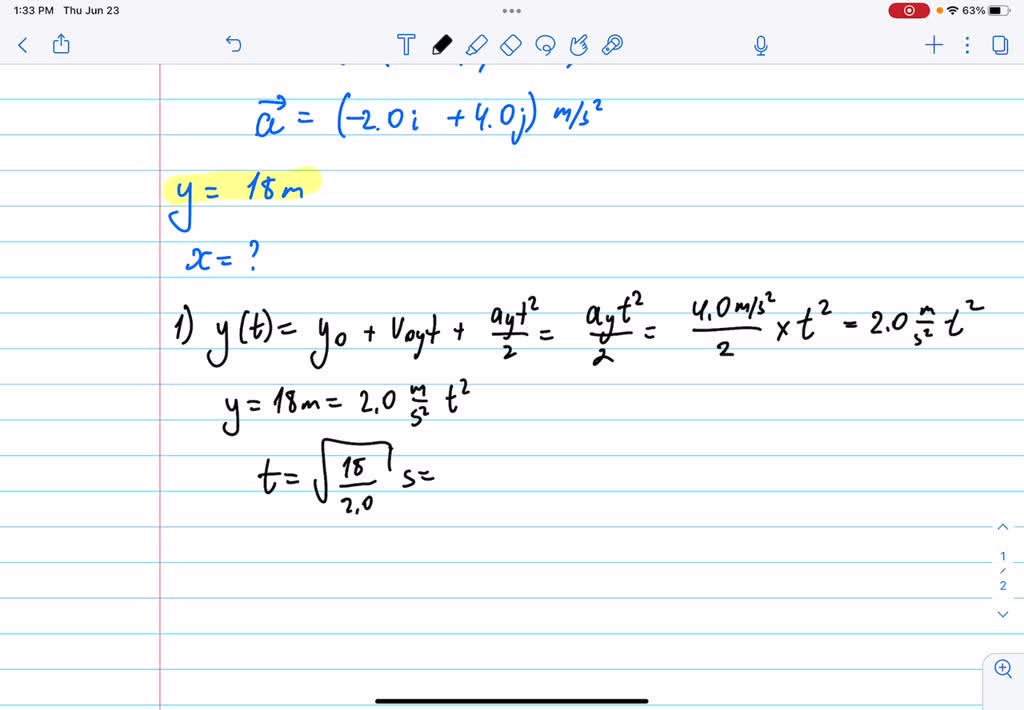 1:33 PM Thu Jun 23
63%
a⃗ = (-2.0i + 4.0j) m/s²
y = 18m
x = ?
1) y(t) = y₀ + v₀yt + ayt²/2 = ayt²/2 = 4.0 m/s²/2 × t² = 2.0 m/s² t²
y = 18m = 2.0 m/s² t²
t = √(18/2.0) s =
1
/
2